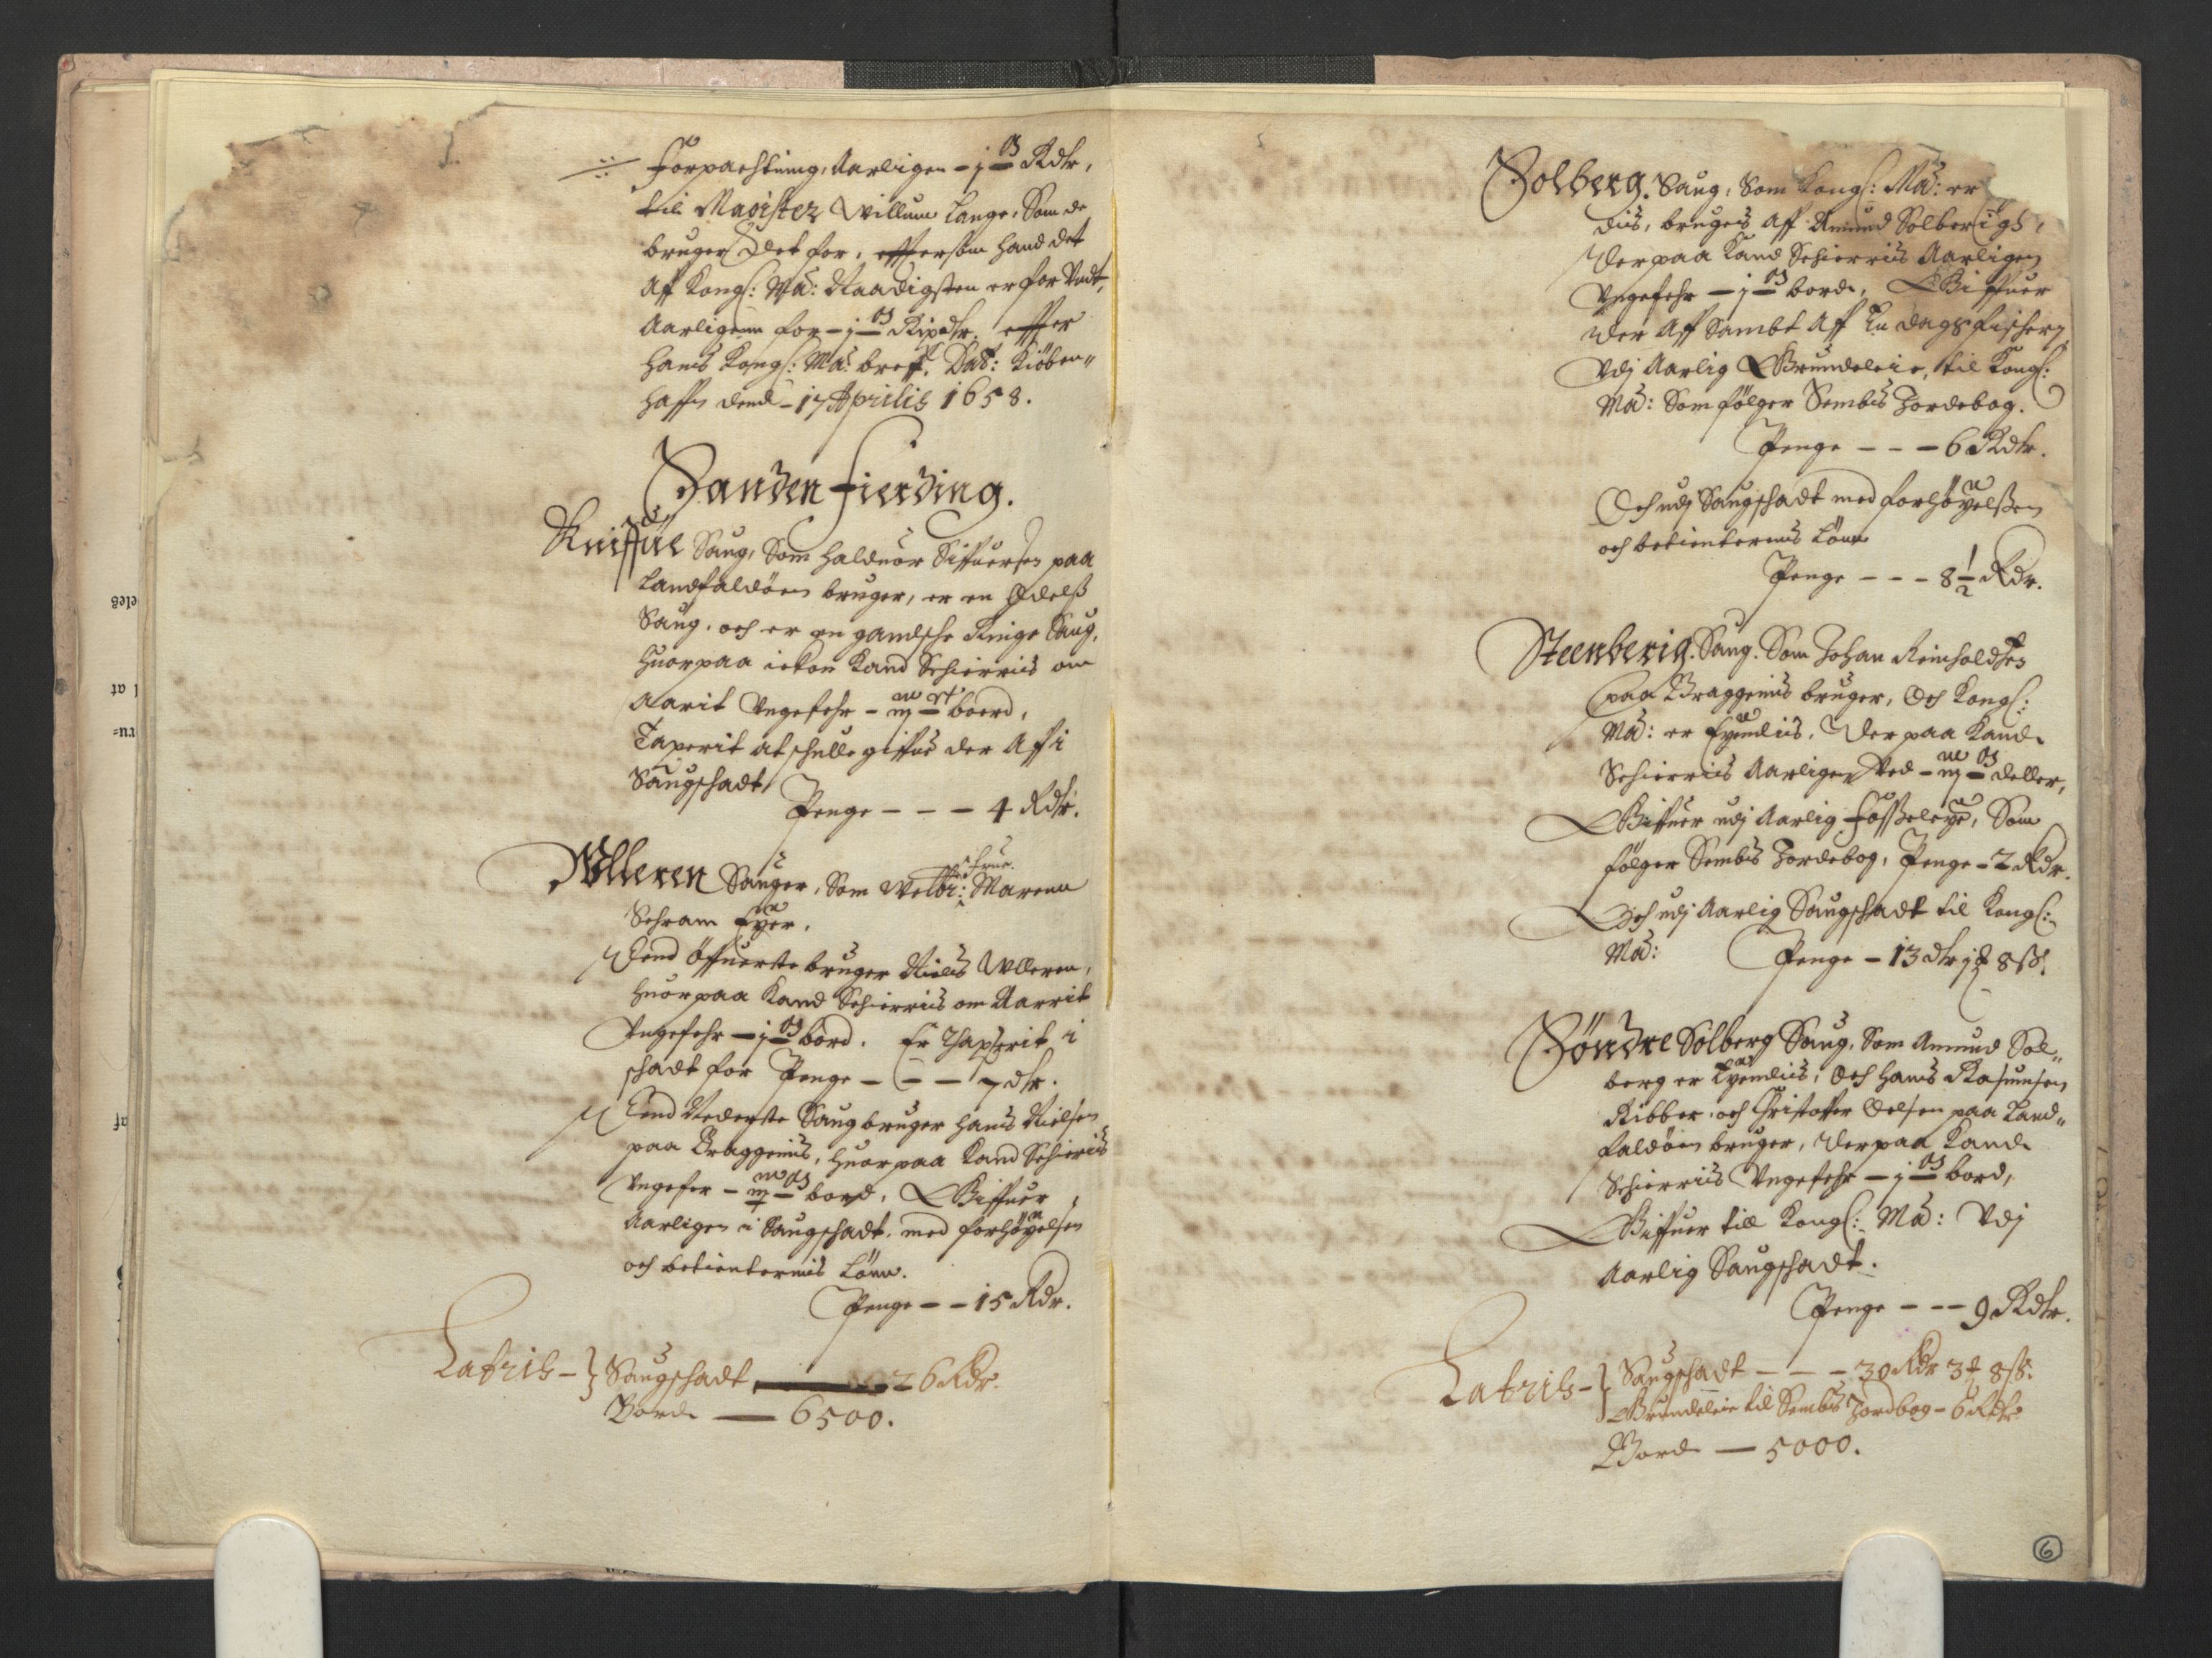 Forpachtning, Aarligen - j m Rdlr,
til Magister Willum Lange, Som de
bruger det for, effter som hand det
Aff Kongl: Ma: Naadigsten er forundt,
Aarligenn for - j m Rixdlr, effter
Hans Kongl: Ma: breff, Dat: Kiöben„
haffn dend - 17 Aprilis 1658.
Sanden Fierding.
Kniffue Saug, Som Haldvor Siffuersen paa
Landfaldöen bruger, er en Odelß
Saug, och er en gandsche Ringe Saug,
Huorpaa icken Kand Schierris om
Aarit Ungefehr - bord,
Taxerit at schulle giffue der Aff i
Saugschadt
Penge - - - 4 Rdlr.
Ulleren Sauger, Som Welbr: frue Maren
Schram Eyer,
Dend Öffuerste bruger Niels Ulleren,
Huorpaa Kand Schierris om Aarrit
Ungefehr - j m bord. Er Thaxerit i
schadt for Penge - - - 7 dlr.
Dend Nederste Saug bruger Hans Nielsen
paa Braggernis, Huorpaa Kand Schierris
Ungefer - bord, Giffuer
Aarligen i Saugschadt, med forhöyelsen
och betienternis Lönn.
Penge - - 15 Rdr.
Lateris - Saugschadt - 26 Rdr.
Bord - 6500.
Solberg. Saug, Som Kongl: Ma: er
dis, bruges Aff Amund Solberigs,
Derpaa Kand Schierris Aarligen
Ungefehr - j m bord, Giffuer
der Aff Sambt Aff En dags fischerj
Udj Aarlig Grundeleie, til Kongl:
Ma: Som fölger Sembs Jordebog.
Penge - - - 6 Rdlr.
Och udj Saugschadt med forhöyelßen
och betienternis Lönn
Penge - - - 8 1/2 Rdr.
Steenberig. Saug. Som Johan Reinholdsen
paa Braggernis bruger, Och Kongl:
Ma: er Eyendis, Derpaa Kand
Schierris Aarligen Ved - deller,
Giffuer udj Aarlig Fosseleye, Som
fölger Sembs Jordebog, Penge - 2 Rdr.
Och udj Aarlig Saugschadt til Kongl:
Ma: Penge - 13 dlr j 8 ß.
Söndre Solberg Saug, Som Amund Sol„
berg er Eyendis, Och Hans Rasmusen
Ribber, och Christoffer Oelsen paa Land„
faldöen bruger, Derpaa Kand
Schierris Ungefehr - j m bord,
Giffuer till Kongl: Ma: Udj
Aarlig Saugschadt.
Penge - - - 9 Rdlr.
Lateris - Saugschadt - - - 30 Rdr 3 8 ß.
Grundeleie til Sembs Jordbog - 6 Rdlr
Bord - 5000.
6